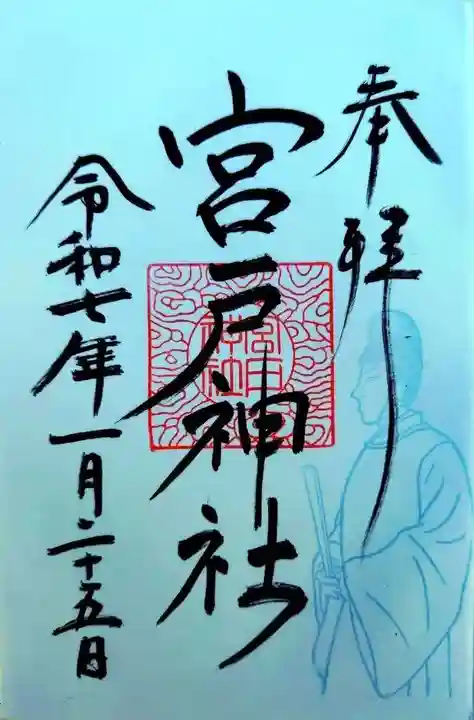 奉拝
宮戸神社
令和七年一月二十五日
宮戸
神社